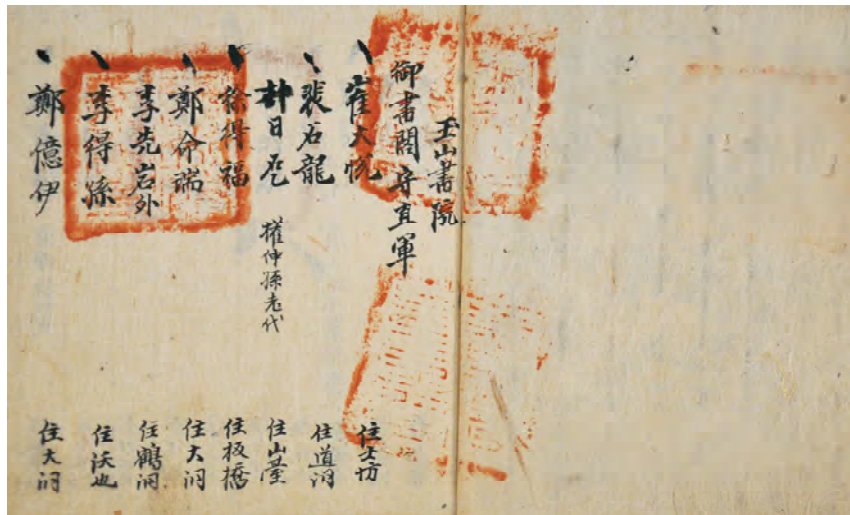 玉山書院
御書閣守直軍
崔大悅 住士坊
裴石龍 住道洞
日尼 權仲孫老代 住山臺
徐得福 住板橋
鄭命瑞 住大洞
李先岩外 住鶴洞
李得孫 住沃也
鄭億伊 住大洞